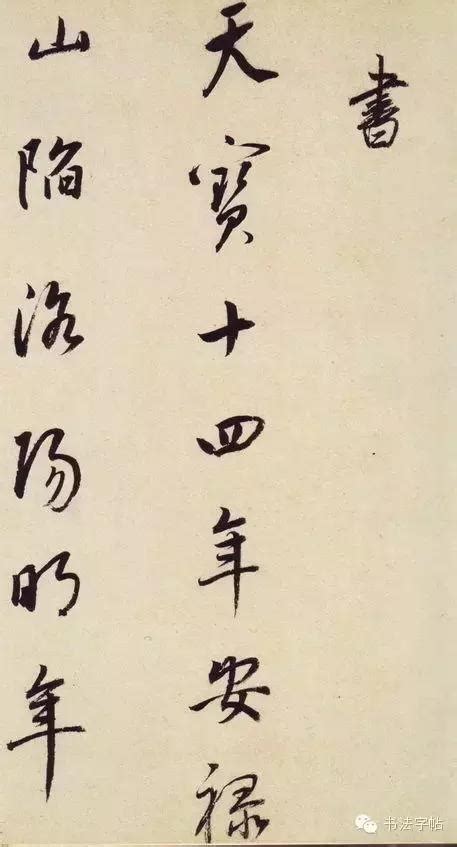 書
天寶十四年安禄
山陷洛陽明年
书法字帖